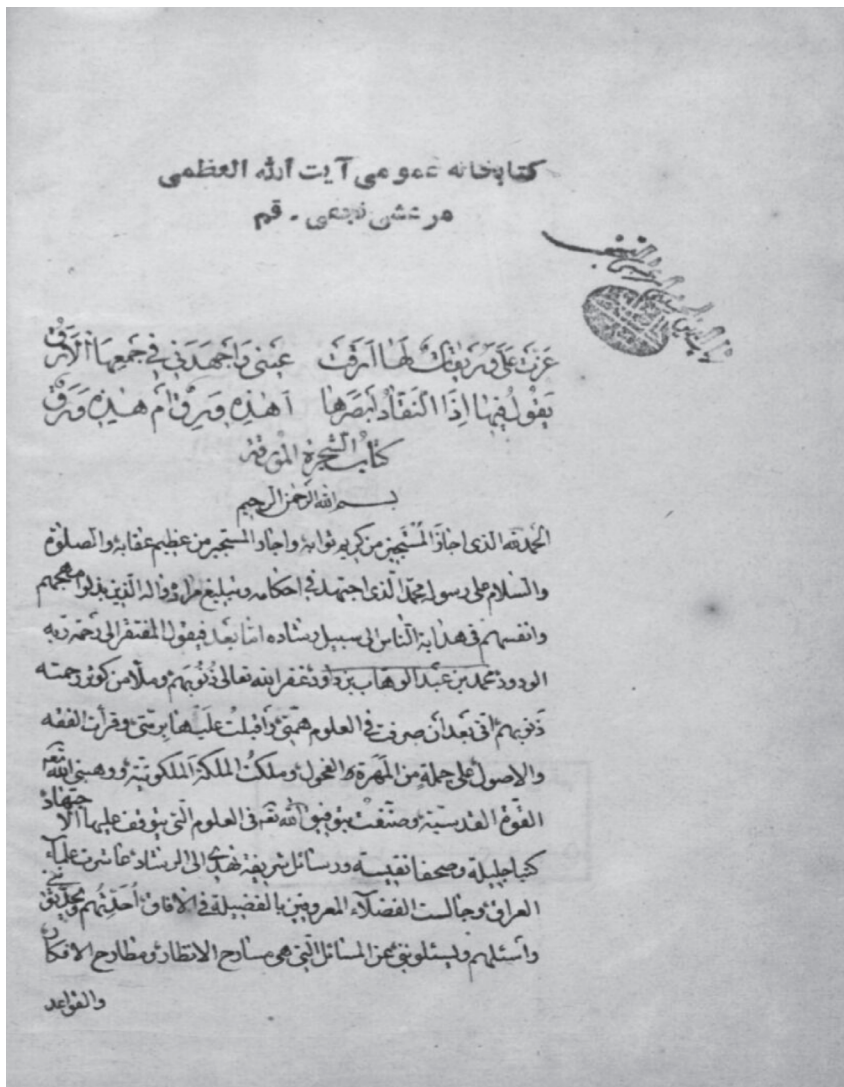 کتابخانه عمومی آیت الله العظمی
مرعشی نجفی ـ قم
عزت علی وریقات لها ارقت عینی واجهدنی فی جمعها الارق
یقول فیها اذا النقاد ابصرها اهذه ورق ام هذه ورق
کتاب الشجرة المورقة
بسم الله الرحمن الرحیم
الحمد لله الذی اجاز المستجیز من کریم ثوابه واجار المستجیر من عظیم عقابه والصلوة
والسلام علی رسوله محمد الذی اجتهد فی احکامه وتبلیغ مراده واله الذین بذلوا مهجهم
وانفسهم فی هدایة الناس الی سبیل رشاده اما بعد فیقول المفتقر الی رحمة ربه
الودود محمد بن عبد الوهاب بن داود غفر الله تعالی ذنوبهم وملا من کوثر رحمته
ذنوبهم انی بعد ان صرفت فی العلوم همتی واقبلت علیها برمتی وقرأت الفقه
والاصول علی جملة من المهرة الفحول وملکت الملکة الملکوتیة ووهبنی الله تعه
القوة القدسیة وصنفت بتوفیق الله تعه فی العلوم التی یتوقف علیها الاجتهاد
کتبا جلیلة وصحفا نفیسة ورسائل شریفة تهدی الی الرشاد عاشرت علماء
العراق وجالست الفضلاء المعروفین بالفضیلة فی الافاق احدثهم ویحدثونی
واسئلهم ویسئلونی عن المسائل التی هی مسارح الانظار ومطارح الافکار
والقواعد